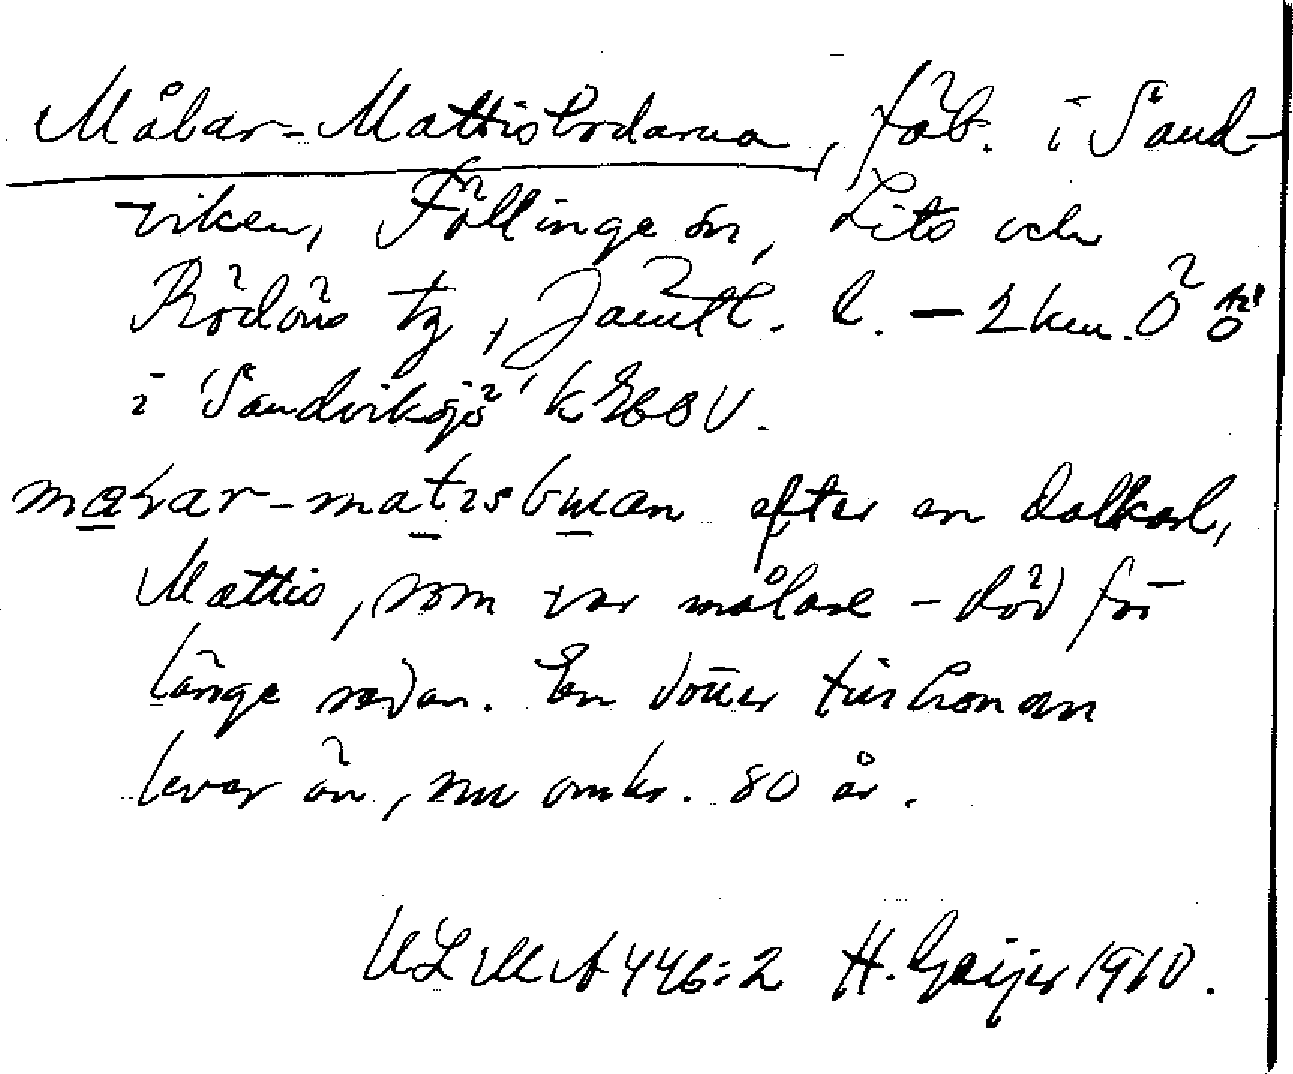 Målar-Mattisbodarna, fäb. i Sand-
viken, Föllinge sn, Lits och
Rödöns tg, Jämtl. l. – 2 km. Ö
i 'Sandviksjö' k
efter en dalkarl,
Mattis, som var målare – död för
länge sedan. En dotter till honom
lever än, nu omkr. 80 år.
ULMA 446:2 H. Geijer 1910.